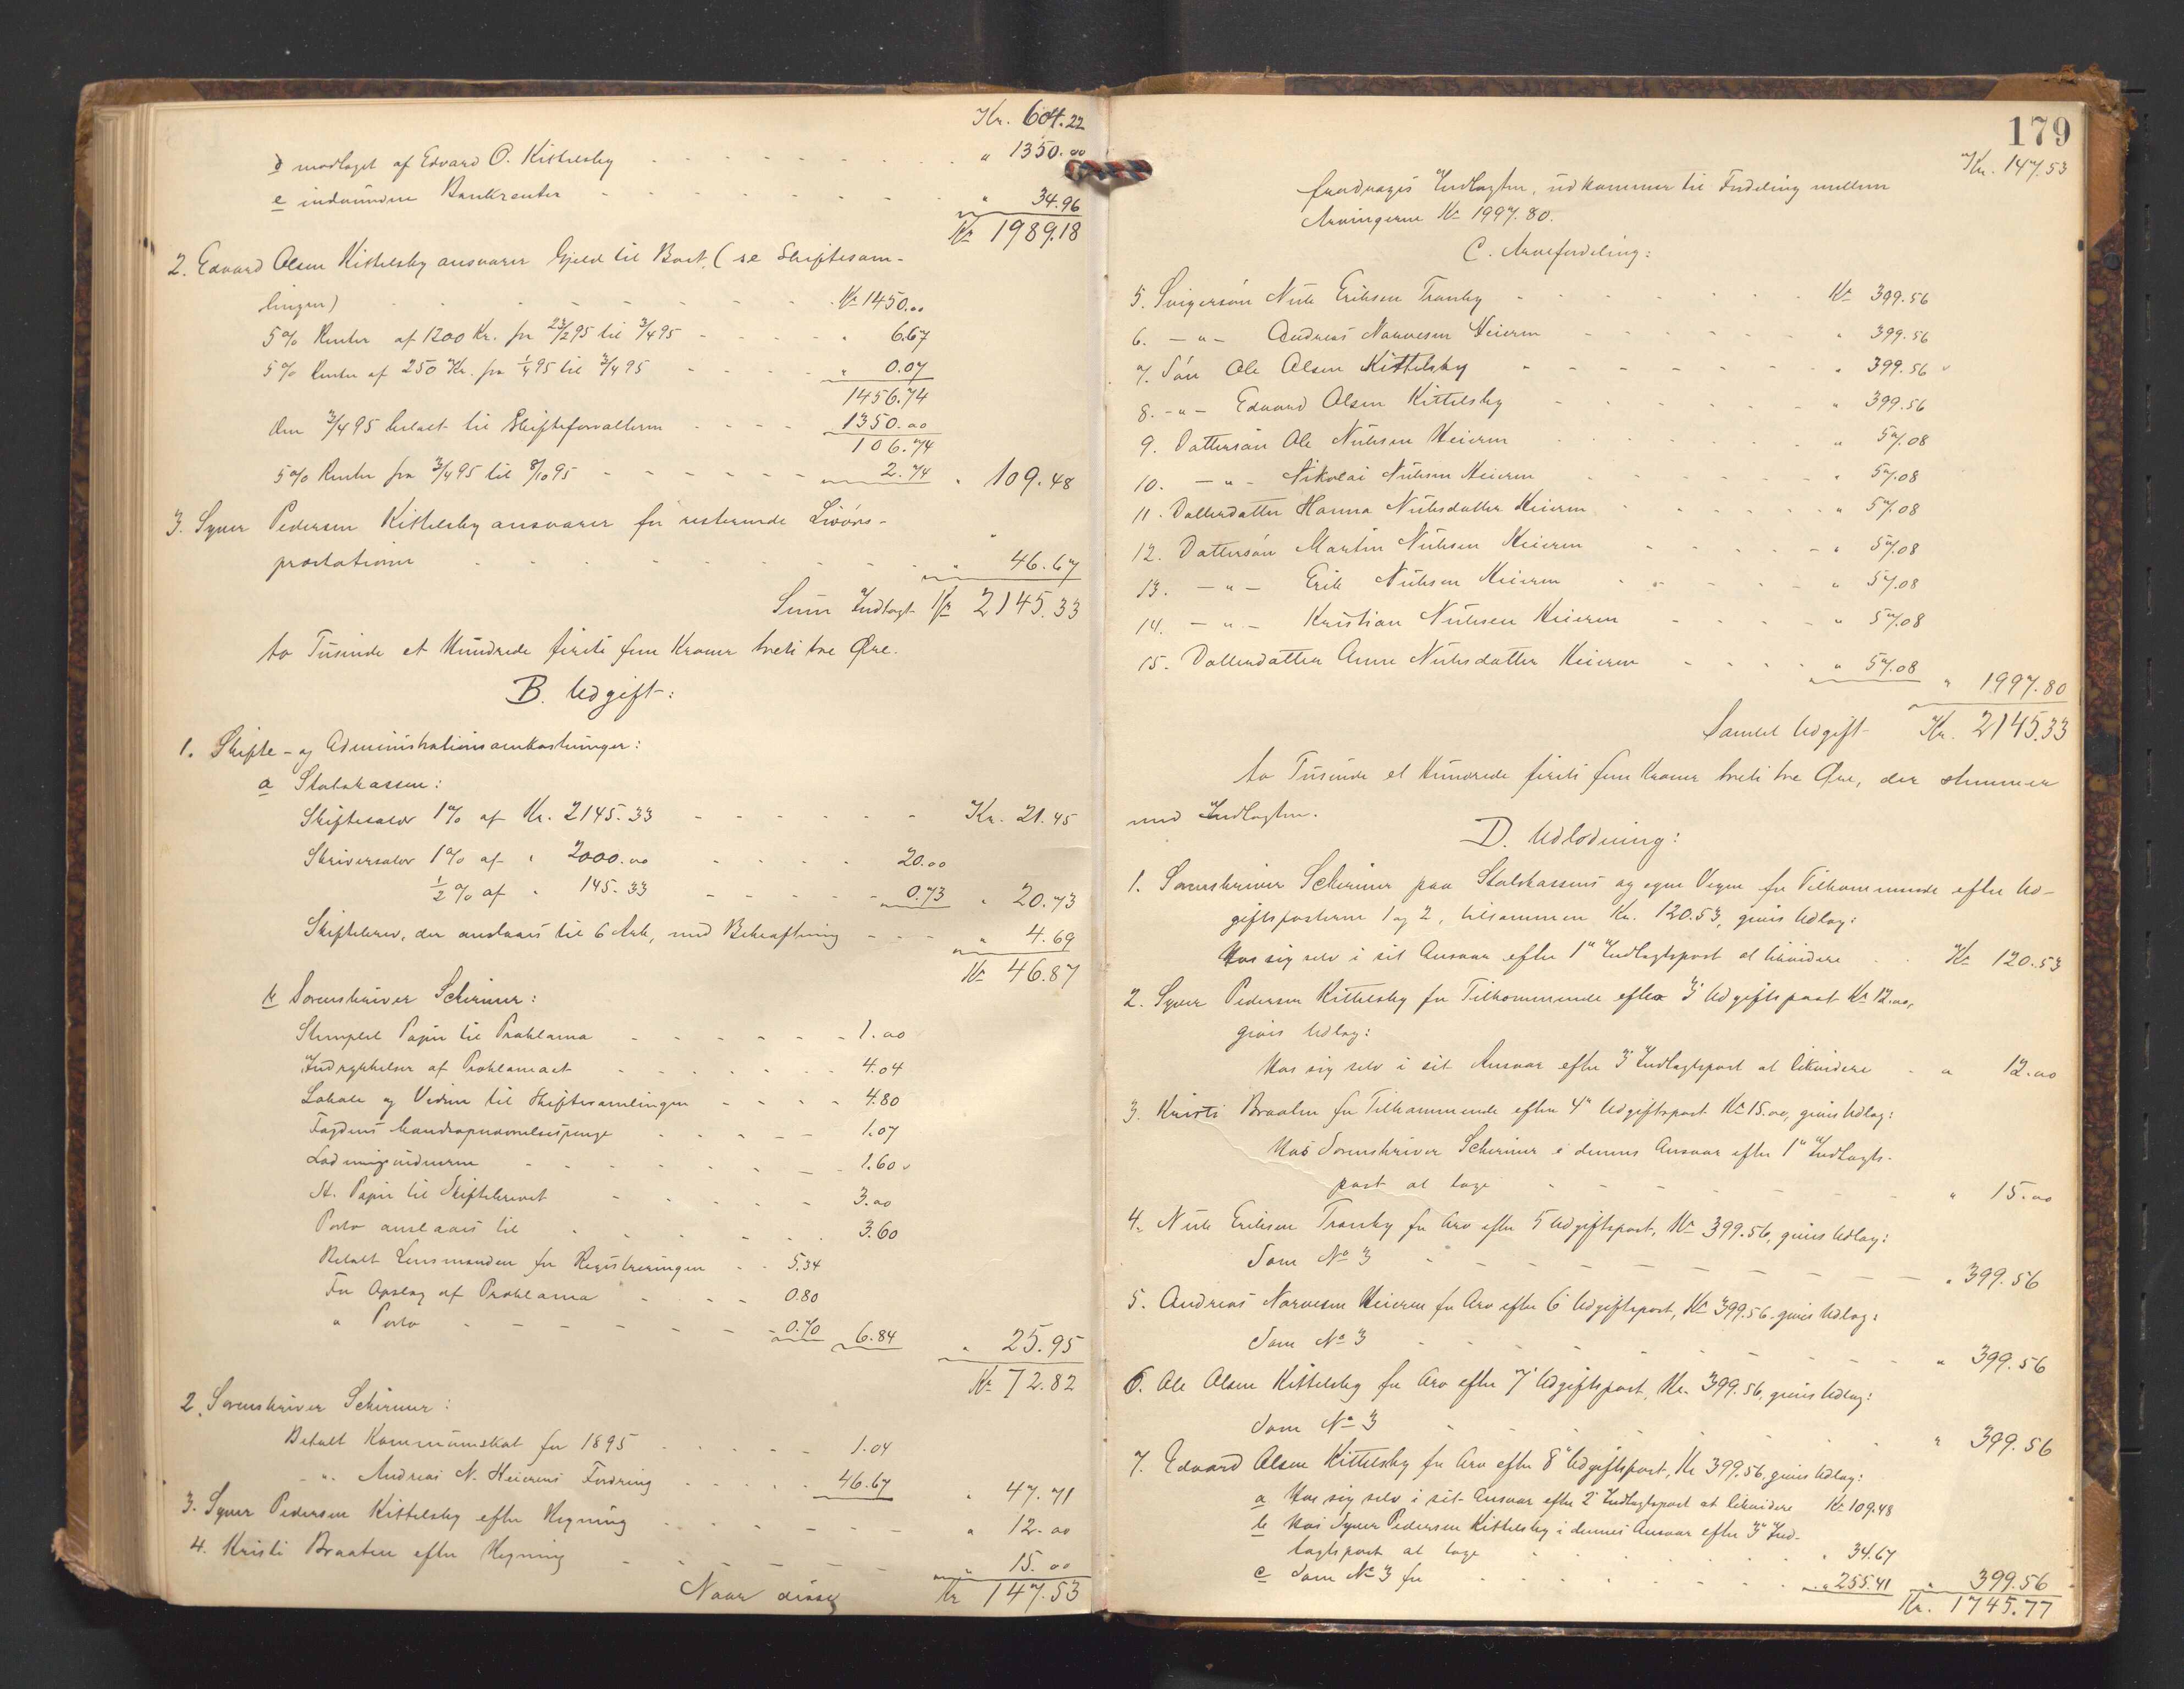 Kr. 604.22
d modtaget af Edvard O. Kittelsby " 1350.00
e indvundne Bankrenter " 34.96
Kr 1989.18
2. Edvard Olsen Kittelsby ansvarer Gjeld til Boet, (se Skiftesam-
lingen) Kr 1450.00
5% Renter af 1200 Kr. fra 23/2 95 til 3/4 95 " 6.67
5% Renter af 250 Kr. fra 1/4 95 til 3/4 95 " 0.07
1456.74
Den 3/4 95 betalt til Skifteforvalteren 1350.00
106.74
5% Renter fra 3/4 95 til 8/10 95 2.74 " 109.48
3. Syver Pedersen Kittelsby ansvarer for resterende Livøres-
præstationer " 46.67
Sum Indtægt Kr 2145.33
to Tusinde et Hundrede firti fem Kroner treti tre Øre.
B. Udgift:
1. Skifte- og Administrationsomkostninger:
a Statskassen:
Skiftesalær 1% af Kr. 2145.33 Kr. 21.45
Skriversalær 1% af " 2000.00 20.00
1/2 % af " 145.33 0.73 " 20.73
Skiftebrev, der anslaaes til 6 Ark, med Bekræftning " 4.69
Kr 46.87
b Sorenskriver Schirmer:
Stemplet Papir til Proklama 1.00
Indrykkelser af Proklamaet 4.04
Lokale og Vidner til Skiftesamlingen 4.80
Fogdens 1.07
Lodningsvidnerne 1.60
St. Papir til Skiftebrevet 3.00
Porto anslaaes til 3.60
Betalt Lensmanden for Registreringen 5.34
For Opslag af Proklama 0.80
" Porto 0.70 6.84 " 25.95
Kr 72.82
2. Sorenskriver Schirmer:
Betalt Kommuneskat for 1895 1.04
-"- Andreas N. Heierens Fordring 46.67 " 47.71
3. Syver Pedersen Kittelsby efter Regning " 12.00
4. Kristi Braaten efter Regning " 15.00
Naar disse Kr 147.53
179
Kr. 147.53
fradrages Indtægten, udkommer til Fordeling mellem
Arvingerne Kr 1997.80.
C. Arvefordeling:
5. Svigersøn Nils Eriksen Tranby Kr 399.56
6. -"- Andreas Narvesen Heieren " 399.56
7. Søn Ole Olsen Kittelsby " 399.56
8. -"- Edvard Olsen Kittelsby " 399.56
9. Dattersøn Ole Nilsen Heieren " 57.08
10. -"- Nikolai Nilsen Heieren " 57.08
11. Datterdatter Hanna Nilsdatter Heieren " 57.08
12. Dattersøn Martin Nilsen Heieren " 57.08
13. -"- Erik Nilsen Heieren " 57.08
14. -"- Kristian Nilsen Heieren " 57.08
15. Datterdatter Anne Nilsdatter Heieren " 57.08 " 1997.80
Samlet Udgift Kr. 2145.33
to Tusinde et Hundrede firti fem Kroner treti tre Øre, der stemmer
med Indtægten.
D. Udlodning:
1. Sorenskriver Schirmer paa Statskassens og egne Vegne for Tilkommende efter Ud-
giftsposterne 1 og 2, tilsammen Kr. 120.53, gives Udlæg:
Hos sig selv i sit Ansvar efter 1" Indtægtspost at likvidere Kr 120.53
2. Syver Pedersen Kittelsby for Tilkommende efter 3" Udgiftspost Kr 12.00,
gives Udlæg:
Hos sig selv i sit Ansvar efter 3" Indtægtspost at likvidere " 12.00
3. Kristi Braaten for Tilkommende efter 4" Udgiftspost Kr 15.00, gives Udlæg:
Hos Sorenskriver Schirmer i dennes Ansvar efter 1" Indtægts-
post at tage " 15.00
4. Nils Eriksen Tranby for Arv efter 5 Udgiftspost, Kr 399.56, gives Udlæg:
Som No 3 " 399.56
5. Andreas Narvesen Heieren for Arv efter 6" Udgiftspost, Kr 399.56. gives Udlæg:
Som No 3 " 399.56
6. Ole Olsen Kittelsby for Arv efter 7" Udgiftspost, Kr. 399.56, gives Udlæg:
Som No 3 " 399.56
7. Edvard Olsen Kittelsby for Arv efter 8" Udgiftspost, Kr 399.56, gives Udlæg:
a Hos sig selv i sit Ansvar efter 2" Indtægtspost at likvidere Kr 109.48
b Hos Syver Pedersen Kittelsby i dennes Ansvar efter 3" Ind-
tægtspost at tage " 34.67
c Som No 3 for " 255.41 " 399.56
Kr. 1745.77